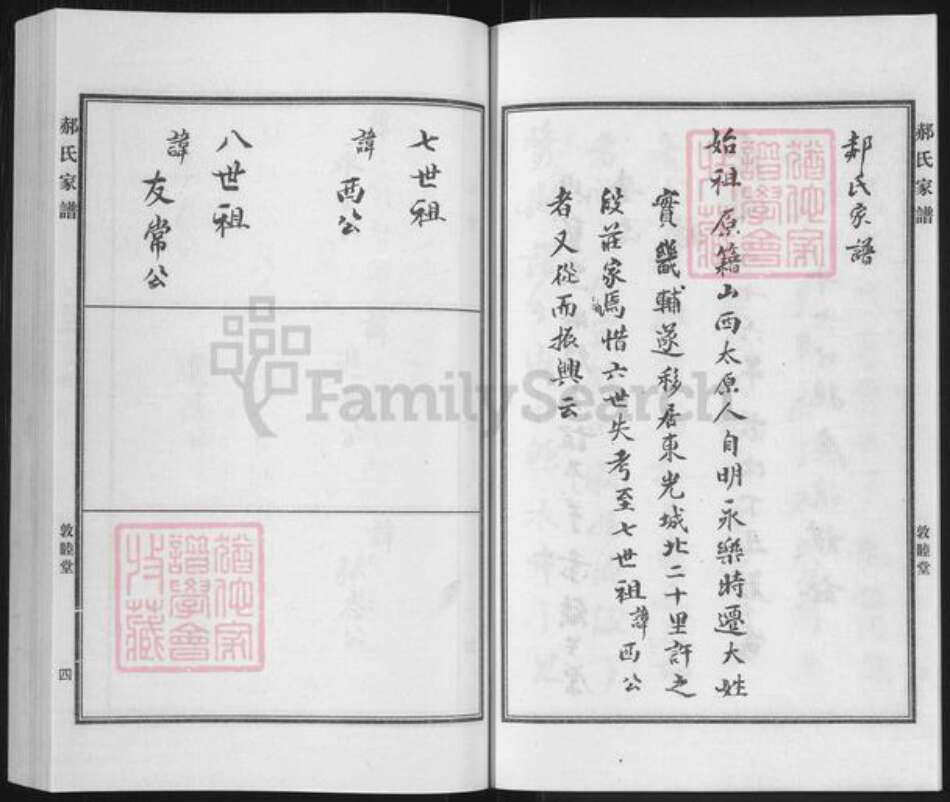 郝氏家譜
敦睦堂
郝氏家譜
始祖 原籍山西太原人自明永樂時遷大姓
實畿輔遂移居東光城北二十里許之
段莊家焉惜六世失考至七世祖諱西公
者又從而振興云
七世祖
諱 西公
八世祖
諱 友常公
郝氏家譜
敦睦堂
四
FamilySearch